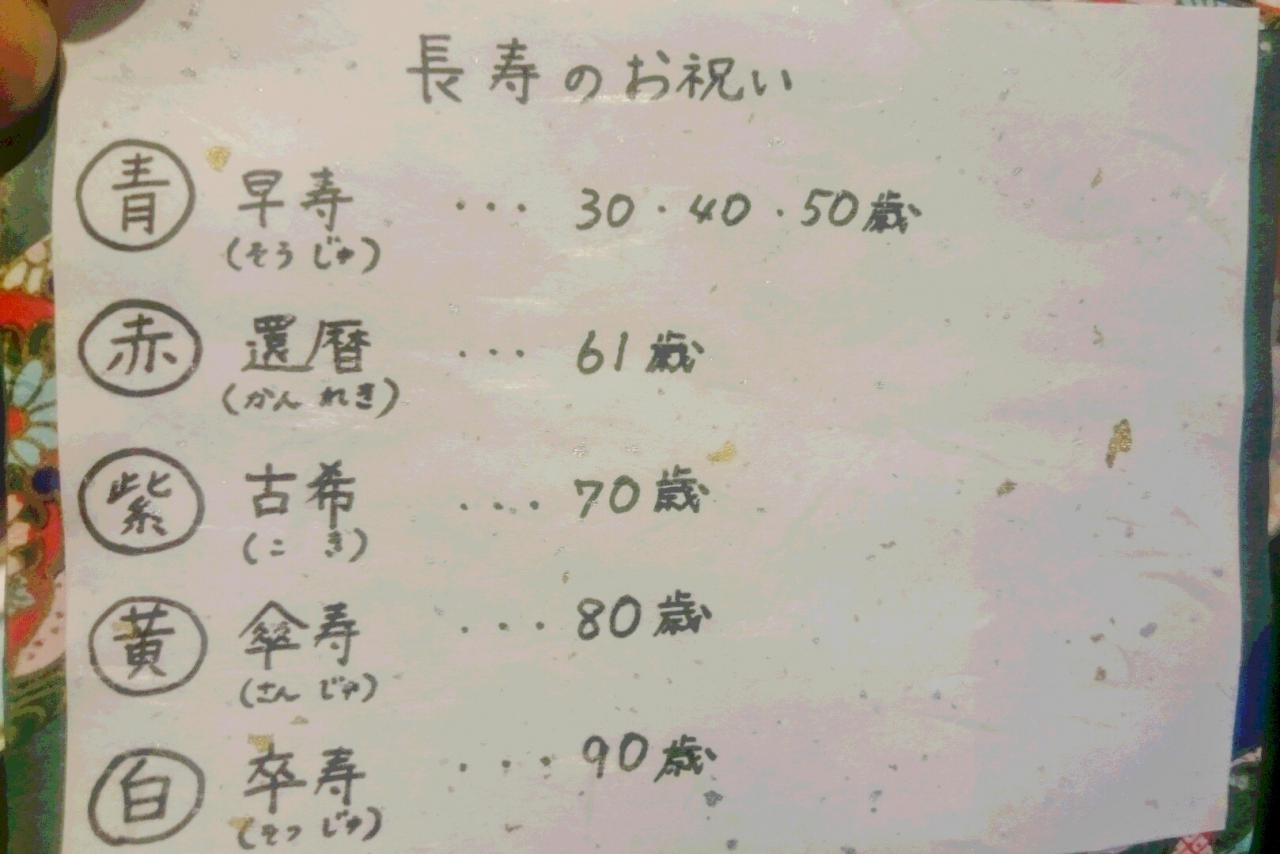 長寿のお祝い
青 早寿 ・・・ 30・40・50歳
(そうじゅ)
赤 還暦 ・・・ 61歳
(かんれき)
紫 古希 ・・・ 70歳
(こき)
黄 傘寿 ・・・ 80歳
(さんじゅ)
白 卒寿 ・・・ 90歳
(そつじゅ)